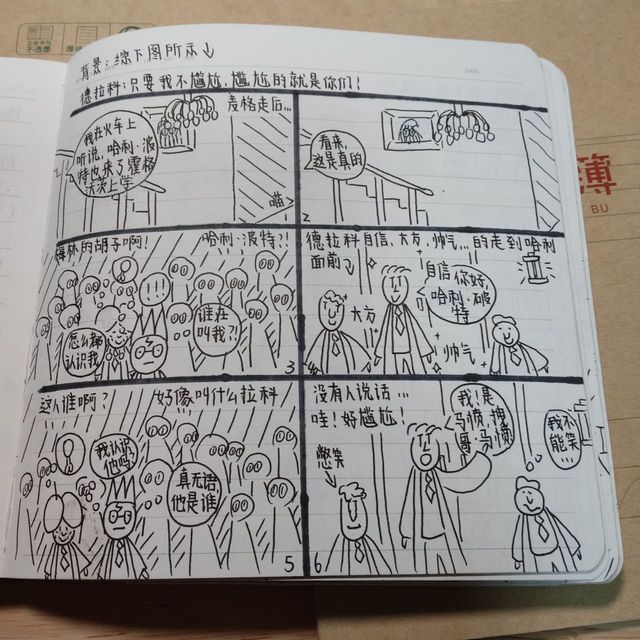 背景:综下图所示↓
德拉科:只要我不尴尬,尴尬的就是你们!
麦格走后…
我在火车上
听说,哈利·波
特也来了霍格
沃茨上学
喵
看来,
这是真的
2
梅林的胡子啊!
哈利·波特?!
怎么都
认识我
谁在
叫我?!
3
德拉科自信、大方、帅气…的走到哈利
面前↓
大方
自信
你好,
哈利·破
特
帅气
这人谁啊?
好像叫什么拉科
我认识
他吗
真无语
他是谁
5
没有人说话…
哇!好尴尬!
憋笑
↓
我!是
马愤,搜
哥·马愤
我不
能笑
…
6
簿
BU
DATE
不透墨